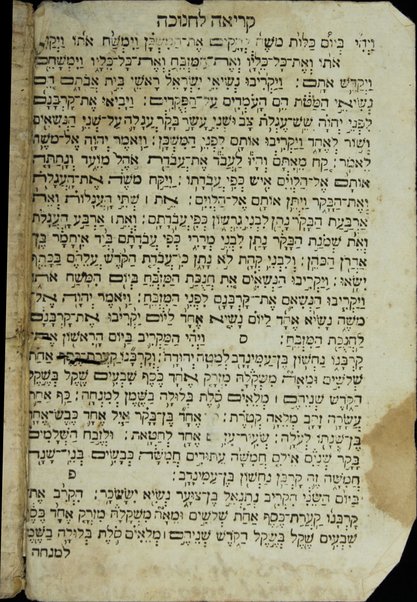 קריאה לחנוכה
וַיְהִי בְּיוֹם כַּלּוֹת מֹשֶׁה לְהָקִים אֶת־הַמִּשְׁכָּן וַיִּמְשַׁח אֹתוֹ וַיְקַדֵּ
אֹתוֹ וְאֶת־כָּל־כֵּלָיו וְאֶת־הַמִּזְבֵּחַ וְאֶת־כָּל־כֵּלָיו וַיִּמְשָׁחֵם
וַיְקַדֵּשׁ אֹתָם׃ וַיַּקְרִיבוּ נְשִׂיאֵי יִשְׂרָאֵל רָאשֵׁי בֵּית אֲבֹתָם הֵם
נְשִׂיאֵי הַמַּטֹּת הֵם הָעֹמְדִים עַל־הַפְּקֻדִים׃ וַיָּבִיאוּ אֶת־קָרְבָּנָם
לִפְנֵי יְהוָה שֵׁשׁ־עֶגְלֹת צָב וּשְׁנֵי עָשָׂר בָּקָר עֲגָלָה עַל־שְׁנֵי הַנְּשִׂאִים
וְשׁוֹר לְאֶחָד וַיַּקְרִיבוּ אוֹתָם לִפְנֵי הַמִּשְׁכָּן׃ וַיֹּאמֶר יְהוָה אֶל־מֹשֶׁה
לֵּאמֹר׃ קַח מֵאִתָּם וְהָיוּ לַעֲבֹד אֶת־עֲבֹדַת אֹהֶל מוֹעֵד וְנָתַתָּה
אוֹתָם אֶל־הַלְוִיִּם אִישׁ כְּפִי עֲבֹדָתוֹ׃ וַיִּקַּח מֹשֶׁה אֶת־הָעֲגָלֹת
וְאֶת־הַבָּקָר וַיִּתֵּן אוֹתָם אֶל־הַלְוִיִּם׃ אֵת ׀ שְׁתֵּי הָעֲגָלוֹת וְאֵת
אַרְבַּעַת הַבָּקָר נָתַן לִבְנֵי גֵרְשׁוֹן כְּפִי עֲבֹדָתָם׃ וְאֵת ׀ אַרְבַּע הָעֲגָלֹת
וְאֵת שְׁמֹנַת הַבָּקָר נָתַן לִבְנֵי מְרָרִי כְּפִי עֲבֹדָתָם בְּיַד אִיתָמָר בֶּן
אַהֲרֹן הַכֹּהֵן׃ וְלִבְנֵי קְהָת לֹא נָתָן כִּי־עֲבֹדַת הַקֹּדֶשׁ עֲלֵהֶם בַּכָּתֵף
יִשָּׂאוּ׃ וַיַּקְרִיבוּ הַנְּשִׂאִים אֵת חֲנֻכַּת הַמִּזְבֵּחַ בְּיוֹם הִמָּשַׁח אֹתוֹ
וַיַּקְרִיבוּ הַנְּשִׂיאִם אֶת־קָרְבָּנָם לִפְנֵי הַמִּזְבֵּחַ׃ וַיֹּאמֶר יְהוָה אֶל
מֹשֶׁה נָשִׂיא אֶחָד לַיּוֹם נָשִׂיא אֶחָד לַיּוֹם יַקְרִיבוּ אֶת־קָרְבָּנָם
לַחֲנֻכַּת הַמִּזְבֵּחַ׃ ס וַיְהִי הַמַּקְרִיב בַּיּוֹם הָרִאשׁוֹן אֶת
קָרְבָּנוֹ נַחְשׁוֹן בֶּן־עַמִּינָדָב לְמַטֵּה יְהוּדָה׃ וְקָרְבָּנוֹ קַעֲרַת־כֶּסֶף אַחַת
שְׁלֹשִׁים וּמֵאָה מִשְׁקָלָהּ מִזְרָק אֶחָד כֶּסֶף שִׁבְעִים שֶׁקֶל בְּשֶׁקֶל
הַקֹּדֶשׁ שְׁנֵיהֶם ׀ מְלֵאִים סֹלֶת בְּלוּלָה בַשֶּׁמֶן לְמִנְחָה׃ כַּף אַחַת
עֲשָׂרָה זָהָב מְלֵאָה קְטֹרֶת׃ פַּר אֶחָד בֶּן־בָּקָר אַיִל אֶחָד כֶּבֶשׂ־אֶחָד
בֶּן־שְׁנָתוֹ לְעֹלָה׃ שְׂעִיר־עִזִּים אֶחָד לְחַטָּאת׃ וּלְזֶבַח הַשְּׁלָמִים
בָּקָר שְׁנַיִם אֵילִם חֲמִשָּׁה עַתּוּדִים חֲמִשָּׁה כְּבָשִׂים בְּנֵי־שָׁנָה
חֲמִשָּׁה זֶה קָרְבַּן נַחְשׁוֹן בֶּן־עַמִּינָדָב׃ פ
בַּיּוֹם הַשֵּׁנִי הִקְרִיב נְתַנְאֵל בֶּן־צוּעָר נְשִׂיא יִשָּׂשכָר׃ הִקְרִב אֶת
קָרְבָּנוֹ קַעֲרַת־כֶּסֶף אַחַת שְׁלֹשִׁים וּמֵאָה מִשְׁקָלָהּ מִזְרָק אֶחָד כֶּסֶף
שִׁבְעִים שֶׁקֶל בְּשֶׁקֶל הַקֹּדֶשׁ שְׁנֵיהֶם ׀ מְלֵאִים סֹלֶת בְּלוּלָה בַשֶּׁמֶן
למנחה